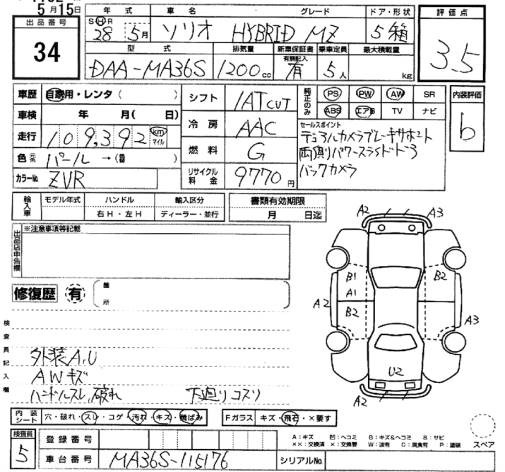 5月15日
出品番号
34
年式 車名 グレード ドア・形状
S H R 28年 5月 ソリオ HYBRID MZ 5箱
評価点
3.5
型式 排気量 新車保証書 乗車定員 最大積載量
DAA-MA36S 1200cc 有 5人 kg
車歴 自家用・レンタ( )
車検 年 月( 日)
走行 109,392 km マイル
色 パール→( )
カラーNo. ZVR
シフト IAT CVT
冷房 AAC
燃料 G
リサイクル料金 9770円
純正のみ PS PW AW SR
ABS エアB TV ナビ
内装評価
b
セールスポイント
デュアルカメラブレーキサポート
両側パワースライドドア
バックカメラ
輸入車 モデル年式 ハンドル 輸入区分 書類有効期限
右H・左H ディーラー・並行 月 日迄
出品店申告欄
※注意事項等記載
修復歴 有
箇所
検査員記入欄
外装A,U
AWキズ
ハンドルスレ,破れ 下廻りコスリ
A2 A3
B1 B2
A1
A2 B2 A3
U2
A2 A3
スペア
内装シート 穴・破れ・スレ・コゲ・汚れ・キズ・色ばみ Fガラス キズ・飛石・×要す
検査員 5
登録番号
車台番号 MA36S-115176 シリアルNo.
A:キズ 凹:ヘコミ B:キズ&ヘコミ S:サビ
××:交換済 W:波有 C:腐食有 P:塗装